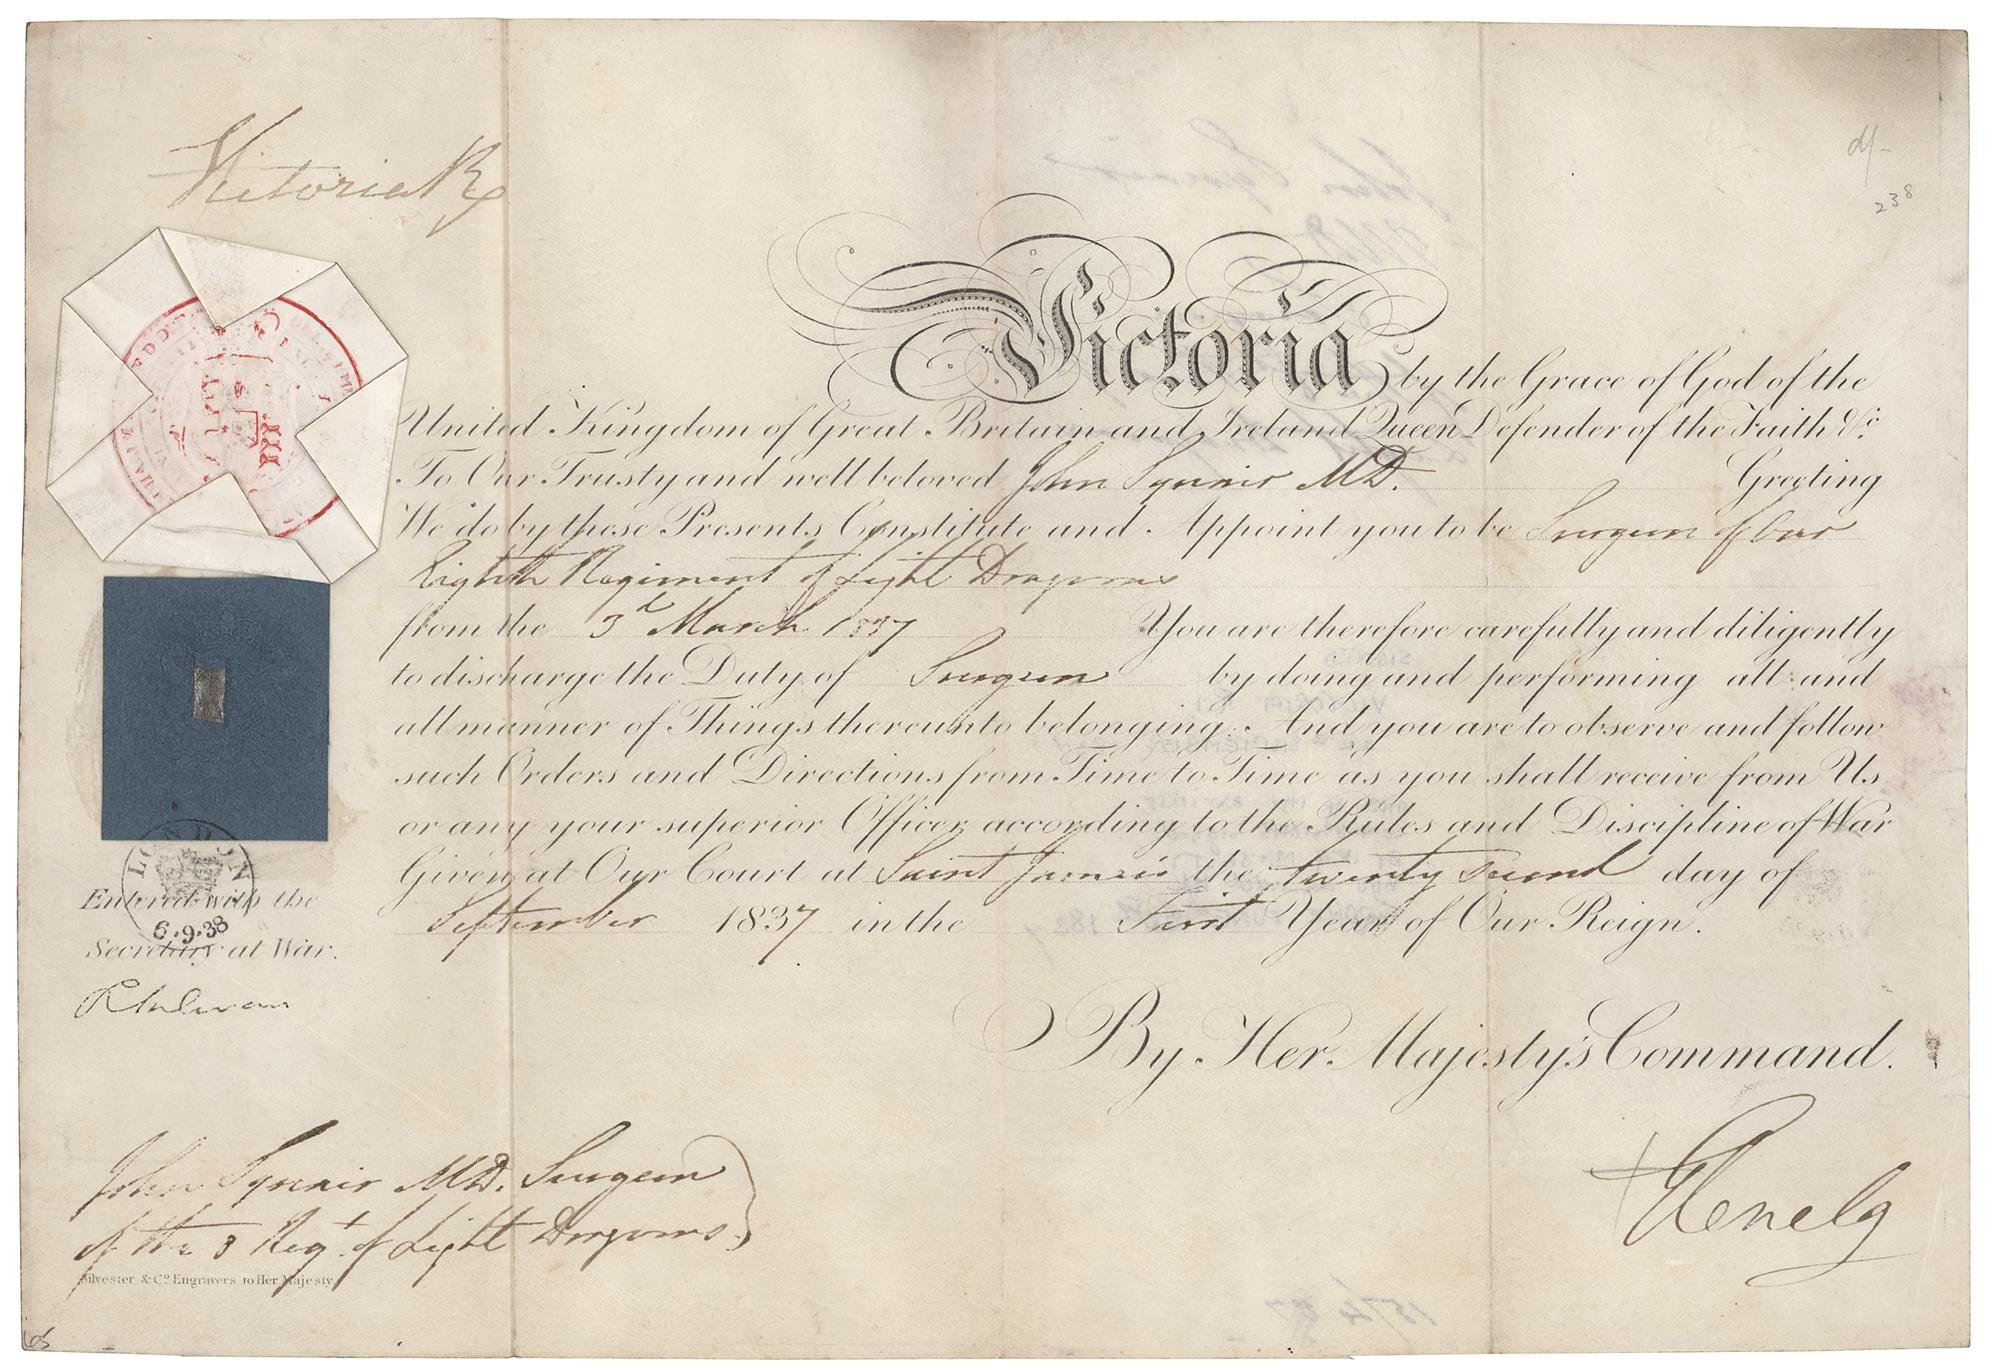 Victoria R
Victoria by the Grace of God of the
United Kingdom of Great Britain and Ireland Queen Defender of the Faith &c
To Our Trusty and well beloved John Squair MD. Greeting
We do by these Presents Constitute and Appoint you to be Surgeon of Our
Eighth Regiment of Light Dragoons
from the 3d March 1837 You are therefore carefully and diligently
to discharge the Duty of Surgeon by doing and performing all and
all manner of Things thereunto belonging. And you are to observe and follow
such Orders and Directions from Time to Time as you shall receive from Us
or any your superior Officer according to the Rules and Discipline of War
Given at Our Court at Saint James's the twenty second day of
September 1837 in the First Year of Our Reign.
By Her Majesty's Command.
Glenelg
LONDON
6.9.38
Entered with the
Secretary at War.
John MD. Surgeon
of the 8 Regt. of Light Dragoons
Silvester & Co. Engravers to Her Majesty.
238